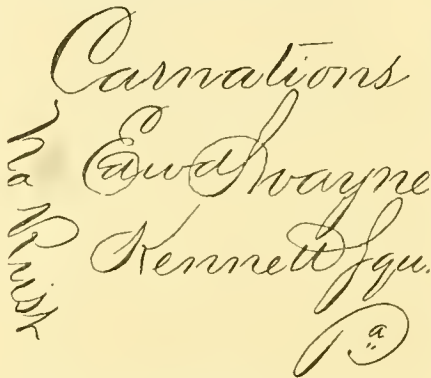 Carnations
Edwd Swayne
Kennett Squ.
Pa
No Risk